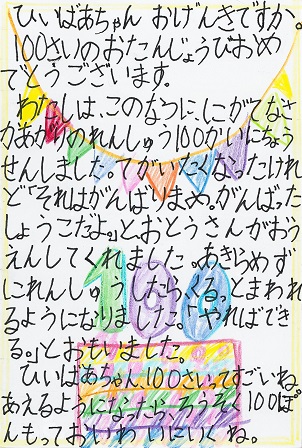 ひいばあちゃん おげんきですか。
100さいのおたんじょうびおめ
でとうございます。
わたしは、このなつに、にがてなさ
かあがりのれんしゅう100かいにちょう
せんしました。てがいたくなったけれ
ど「それはがんばりまめ。がんばった
しょうこだよ。」とおとうさんがおう
えんしてくれました。あきらめず
にれんしゅうしたらくるっとまわれ
るようになりました。「やればでき
る。」とおもいました。
ひいばあちゃん、100さいってすごいね。
あえるようになったら、ろうそく100ぽ
んもっておいわいにいくね。
100